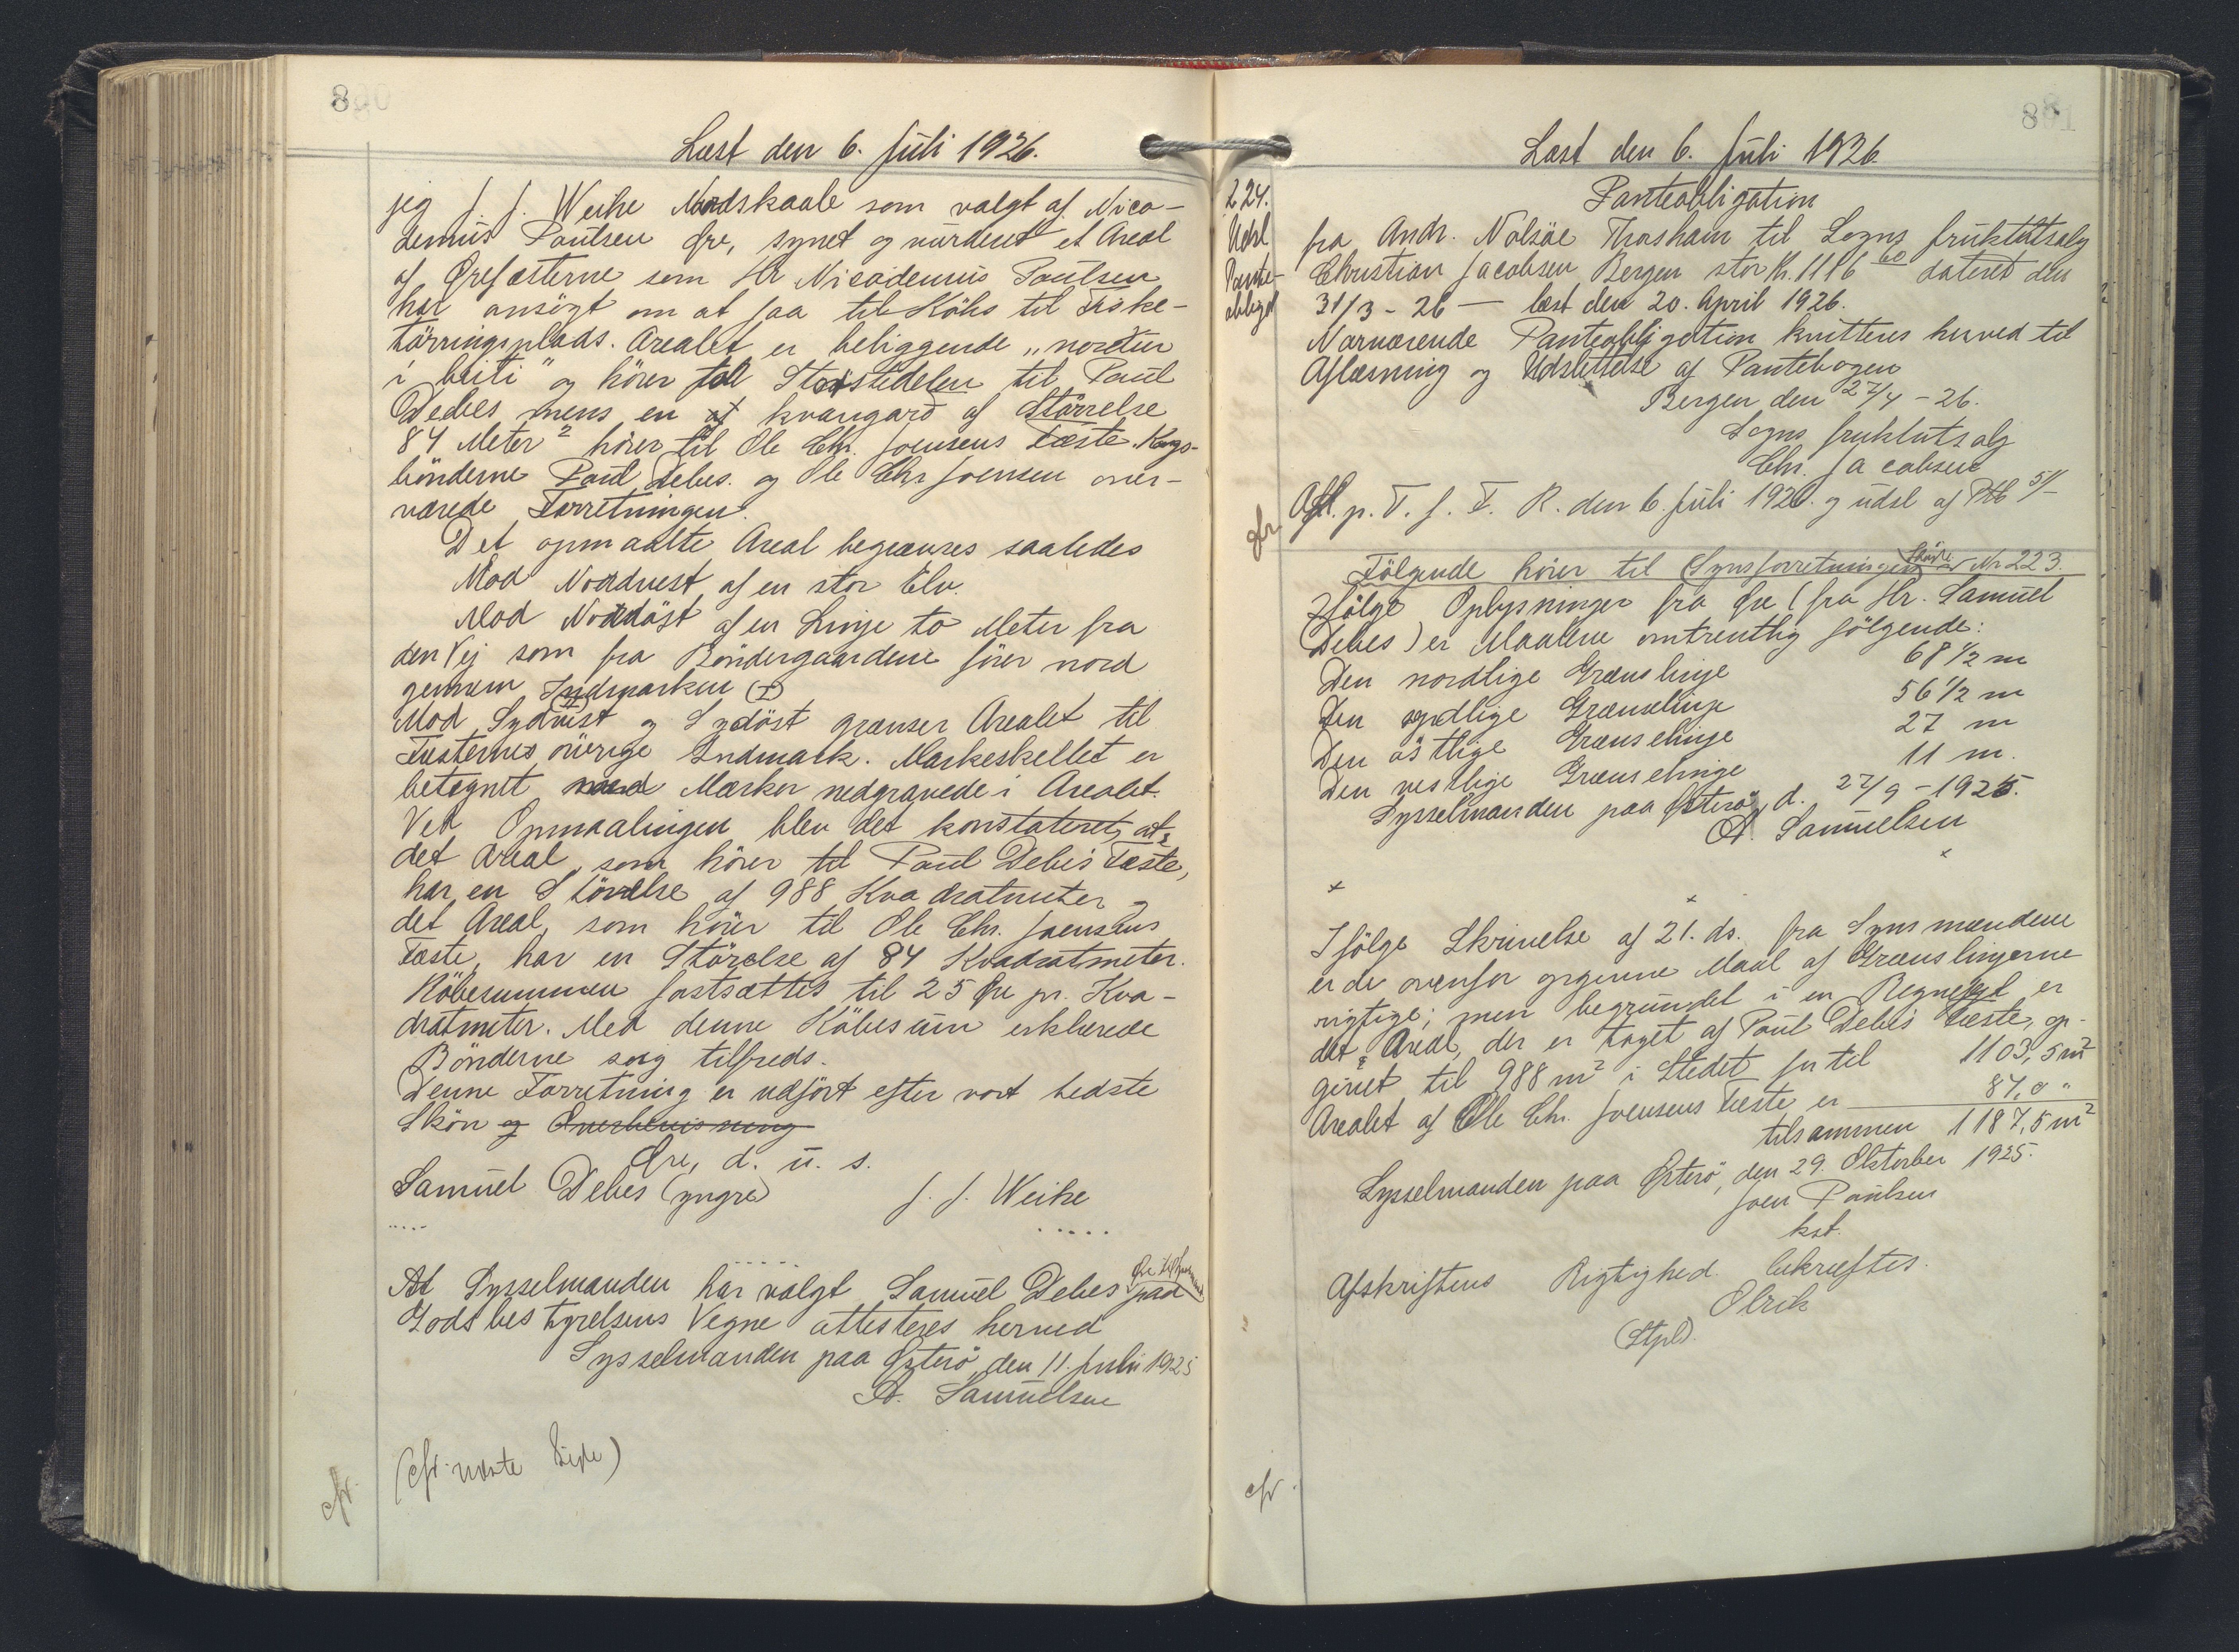 Læst den 6. Juli 1926.
jeg J. J. Weihe Nordskaale som valgt af Nico-
demus Poulsen Øre, synet og vurderet et Areal
af Ørefæsterne som Hr Nicodemus Poulsen
har ansögt om at faa til Köbs til Fiske-
törringsplads. Arealet er beliggende „nordur
i beiti" og hörer til Störstedelen til Poul
Debes mens en af kvangard af Störrelse
84 Meter² hörer til Ole Chr. Joensens Fæste. Kongs-
bönderne Poul Debes. og Ole Chr Joensen over-
værede Forretningen.
Det opmaalte Areal begrænses saaledes
Mod Nordvest af en stor Elv.
Mod Nordöst af en Linje to Meter fra
den Vej som fra Böndergaardene förer nord
gennem Indmarken (+)
Mod Sydvest og Sydöst grænser Arealet til
Fæsternes övrige Indmark. Markeskellet er
betegnet med Mærker nedgravede i Arealet.
Ved Opmaalingen blev det konstateret, at
det Areal, som hörer til Poul Debes Fæste,
har en Störrelse af 988 Kvadratmeter og
det Areal, som hörer til Ole Chr. Joensens
Fæste, har en Störelse af 84 Kvadratmeter.
Köbesummen fastsættes til 25 Øre pr. Kva-
dratmeter. Med denne Köbesum erklærede
Bönderne seig tilfreds.
Denne Forretning er udfört efter vort bedste
Skön og Overbevisning
Øre, d. u. s.
Samuel Debes (yngre) J. J. Weihe
..... .....
.....
At Sysselmanden har valgt Samuel Debes paa
Godsbestyrelsens Vegne attesteres herved
Sysselmanden paa Østerö, den 11. Juli 1925
A. Samuelsen
(cfr. næste Side)
cfr.
881
Læst den 6. Juli 1926
224.
Udsl
Pante-
obligat
Panteobligation
fra Andr. Nolsöe Thorshavn til Logns fruktutsalg
Christian Jacobsen Bergen stor K. 1116 60 dateret den
31/3 - 26 — læst den 20. April 1926.
Nærværende Panteobligation kvitteres herved til
Aflæsning og Udslettelse af Pantebogen
Bergen den 27/4 - 26.
Logns fruktutsalg
Chr. Jacobsen
Afl. p. T. f. F. R. den 6. Juli 1926. og udsl af Ptb 51/-
cfr.
Fölgende hörer til Synsforretningen Nr 223.
Ifölge Oplysninger fra Øre (fra Hr. Samuel
Debes) er Maalene omtrentlig fölgende:
Den nordlige Grænslinje 68 1/2 m
Den sydlige Grænselinje 56 1/2 m
Den östlige Grænselinje 27 m
Den vestlige Grænselinje 11 m.
Sysselmanden paa Østerö, d. 27/9 - 1925.
A. Samuelsen
+ + +
Ifölge Skrivelse af 21. ds. fra Synsmændene
er de ovenfor opgivne Maal af Grænslinjerne
rigtige; men begrundet i en Regnefejl er
det Areal, der er taget af Poul Debes Fæste, op-
givet til 988 m² i Stedet for til 1103,5 m²
Arealet af Ole Chr. Joensens Fæste er 84,0 "
tilsammen 1187,5 m²
Sysselmanden paa Østerö, den 29. Oktober 1925.
Joen Poulsen
kst.
Afskriftens Rigtighed bekræftes.
Olrik
(Stpl).
cfr.